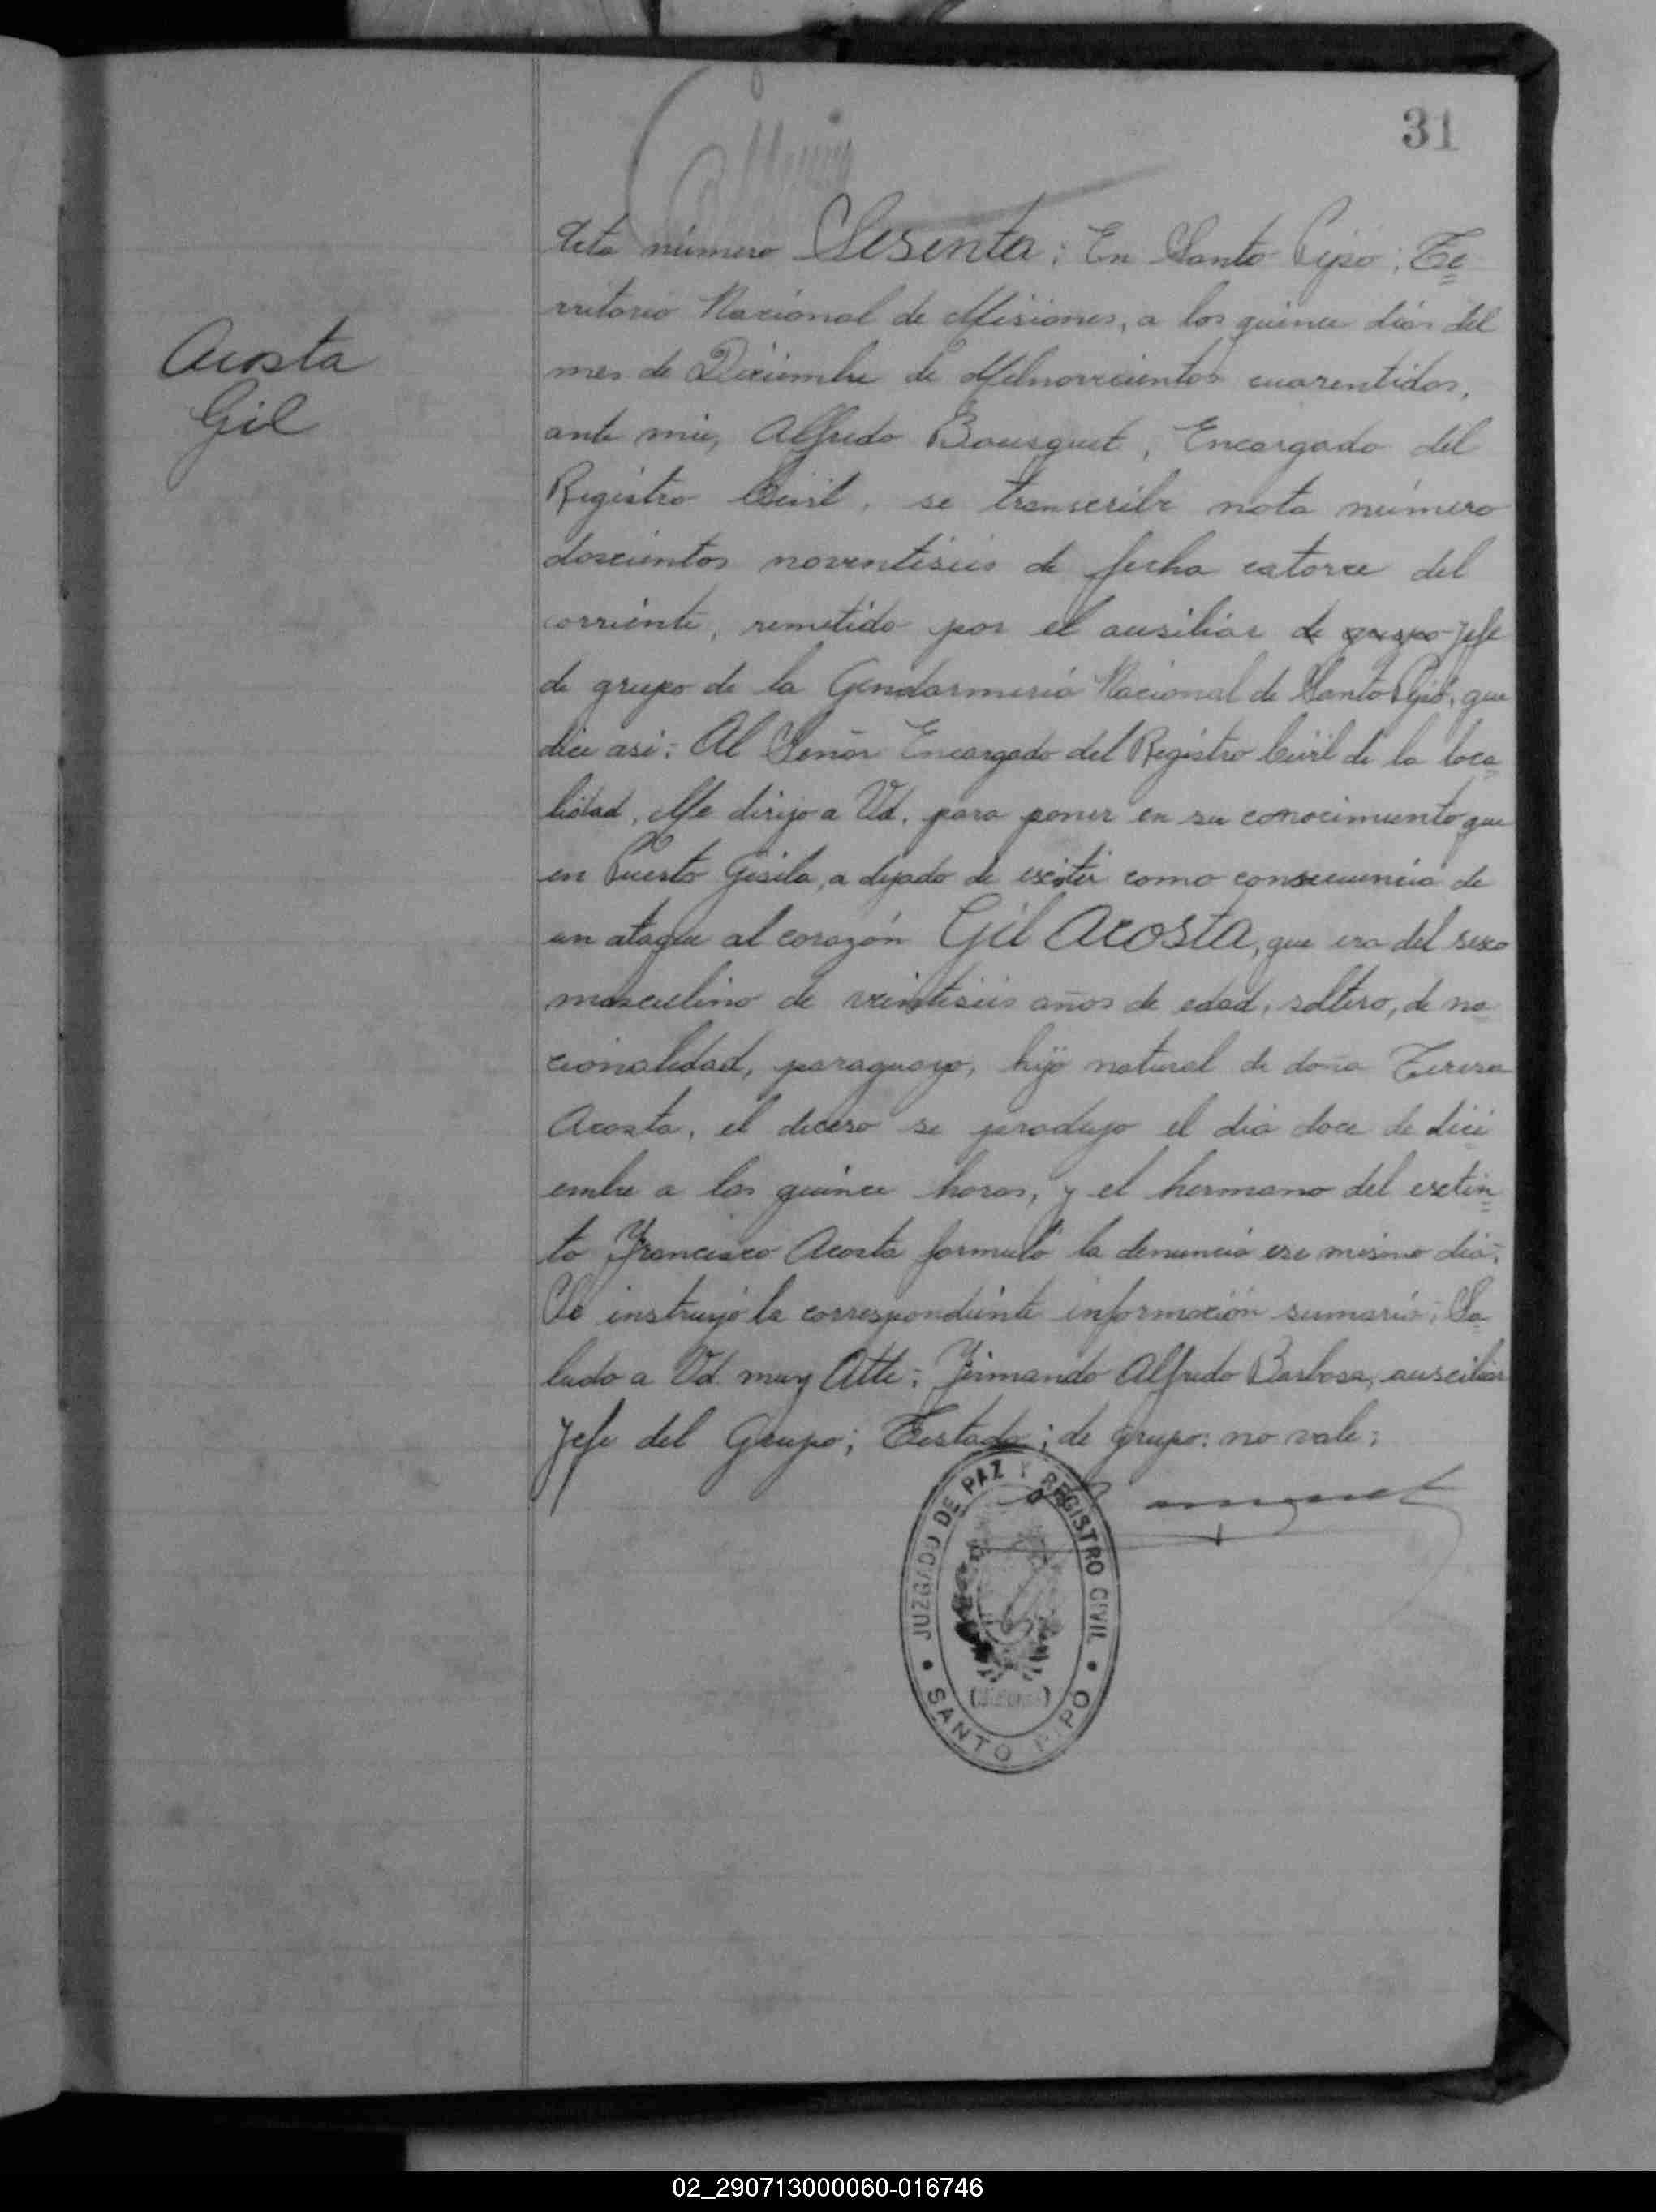 31
Acta número Sesenta: En Santo Pipó; Te=
rritorio Nacional de Misiones, a los quince dias del
mes de Diciembre de Milnovecientos cuarentidos,
Acosta
Gil
ante mi, Alfredo Bousquet, Encargado del
Registro Civil, se transcribe nota número
doscientos noventiseis de fecha catorce del
corriente, remitido por el ausiliar de grupo jefe
de grupo de la Gendarmeria Nacional de Santo Pipó, que
dice asi: Al Señor Encargado del Registro Civil de la loca=
lidad, Me dirijo a Vd. para poner en su conocimiento que
en Puerto Gisela, a dejado de exister como consecuencia de
un ataque al corazón Gil Acosta, que era del sexo
masculino de veintiseis años de edad, soltero, de na
cionalidad, paraguayo, hijo natural de doña Teresa
Acosta, el deceso se produjo el dia doce de dici
embre a las quince horas, y el hermano del extin=
to Francisco Acosta formuló la denuncia ese mismo dia.
Se instruyó la correspondiente información sumaria; Sa=
ludo a Vd. muy Atte: Firmando Alfredo Barbosa, auxiliar
Jefe del Grupo; Testado; de grupo: no vale;
JUZGADO DE PAZ Y REGISTRO CIVIL
SANTO PIPO
02_290713000060-016746